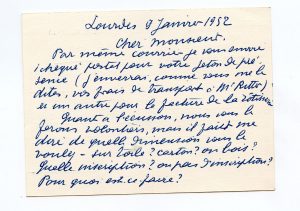 Lourdes 9 Janvier 1952
Cher Monsieur.
Par même courrier je vous envoie
1 chèque postal pour votre jeton de pré-
sence (j'enverrai, comme vous me le
dites, vos frais de transport à Mr
et un autre pour la facture de la
Quant à l'écusson, nous vous le
ferons volontiers, mais il faut me
dire de quelle dimension vous le
voulez - sur toile? carton? ou bois?
Quelle inscription? ou pas d'inscription?
Pour quoi est-ce faire?